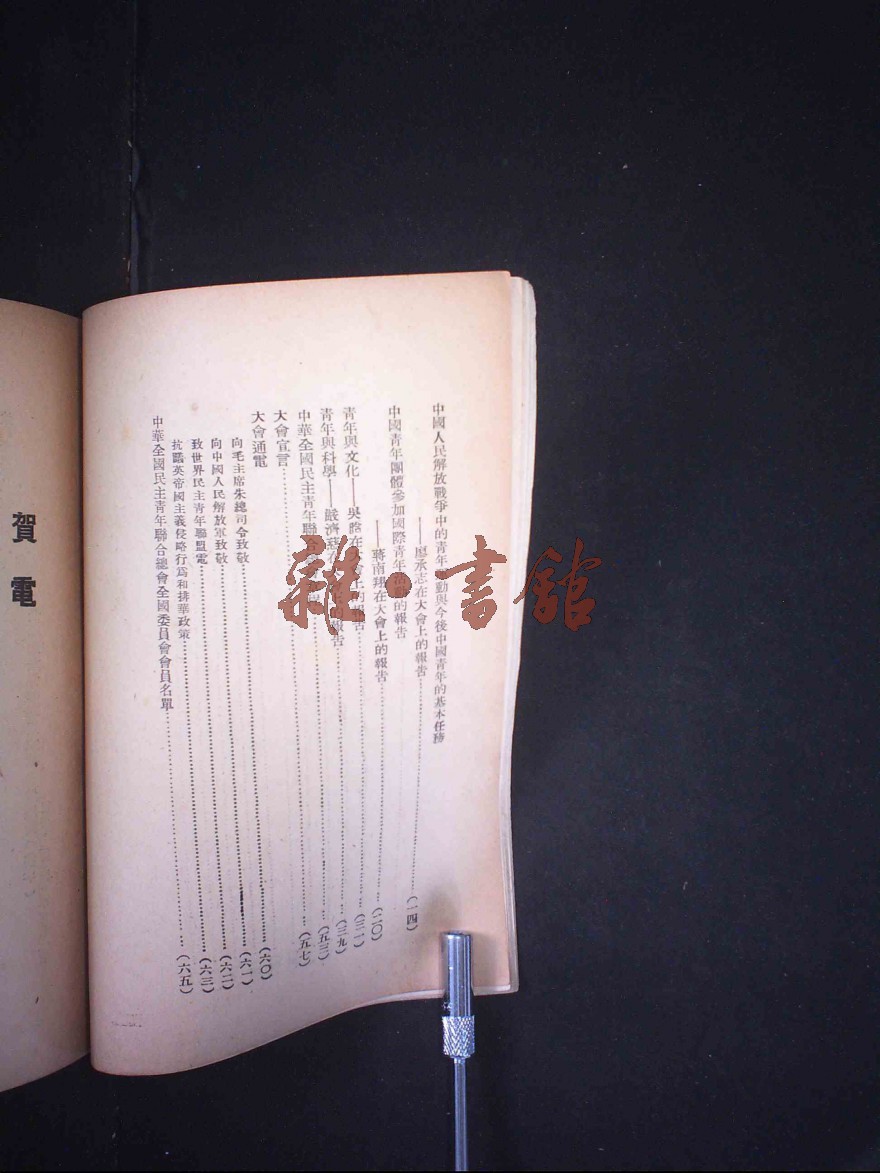 中國人民解放戰爭中的青年運動與今後中國青年的基本任務
——廖承志在大會上的報告……(一四)
中國青年團體參加國際青年活動的報告
——蔣南翔在大會上的報告……(二〇)
青年與文化——吳晗在大會上的報告……(三一)
青年與科學——嚴濟慈在大會上的報告……(三九)
中華全國民主青年聯合……(五三)
大會宣言……(五七)
大會通電
向毛主席朱總司令致敬……(六〇)
向中國人民解放軍致敬……(六一)
致世界民主青年聯盟電……(六二)
抗議英帝國主義侵略行爲和排華政策……(六三)
中華全國民主青年聯合總會全國委員會會員名單……(六五)
賀電
雜·書館